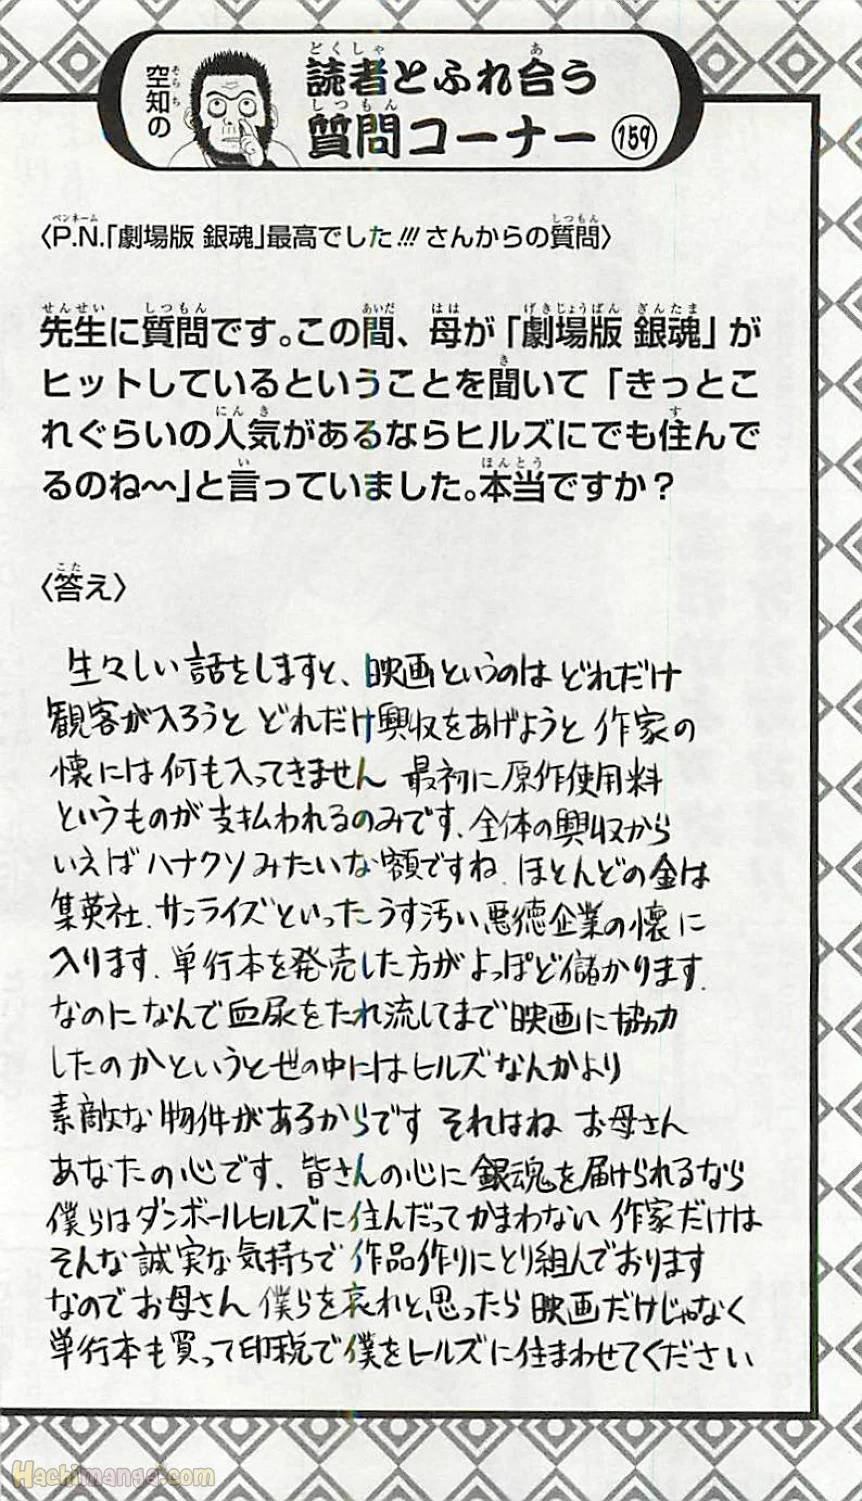 空知の
読者とふれ合う
質問コーナー 159
〈P.N.「劇場版 銀魂」最高でした!!!さんからの質問〉
先生に質問です。この間、母が「劇場版 銀魂」が
ヒットしているということを聞いて「きっとこ
れぐらいの人気があるならヒルズにでも住んで
るのね〜〜」と言っていました。本当ですか？
〈答え〉
生々しい話をしますと、映画というのは どれだけ
観客が入ろうと どれだけ興収をあげようと 作家の
懐には何も入ってきません 最初に原作使用料
というものが支払われるのみです.全体の興収から
いえばハナクソみたいな額ですね.ほとんどの金は
集英社.サンライズといったうす汚い悪徳企業の懐に
入ります.単行本を発売した方がよっぽど儲かります.
なのになんで血尿をたれ流してまで映画に協力
したのかというと世の中にはヒルズなんかより
素敵な物件があるからです それはね お母さん
あなたの心です.皆さんの心に銀魂を届けられるなら
僕らはダンボールヒルズに住んだってかまわない 作家だけは
そんな誠実な気持ちで 作品作りにとり組んでおります
なのでお母さん 僕らを哀れと思ったら映画だけじゃなく
単行本も買って印税で僕をヒルズに住まわせてください
Hachimanga.com